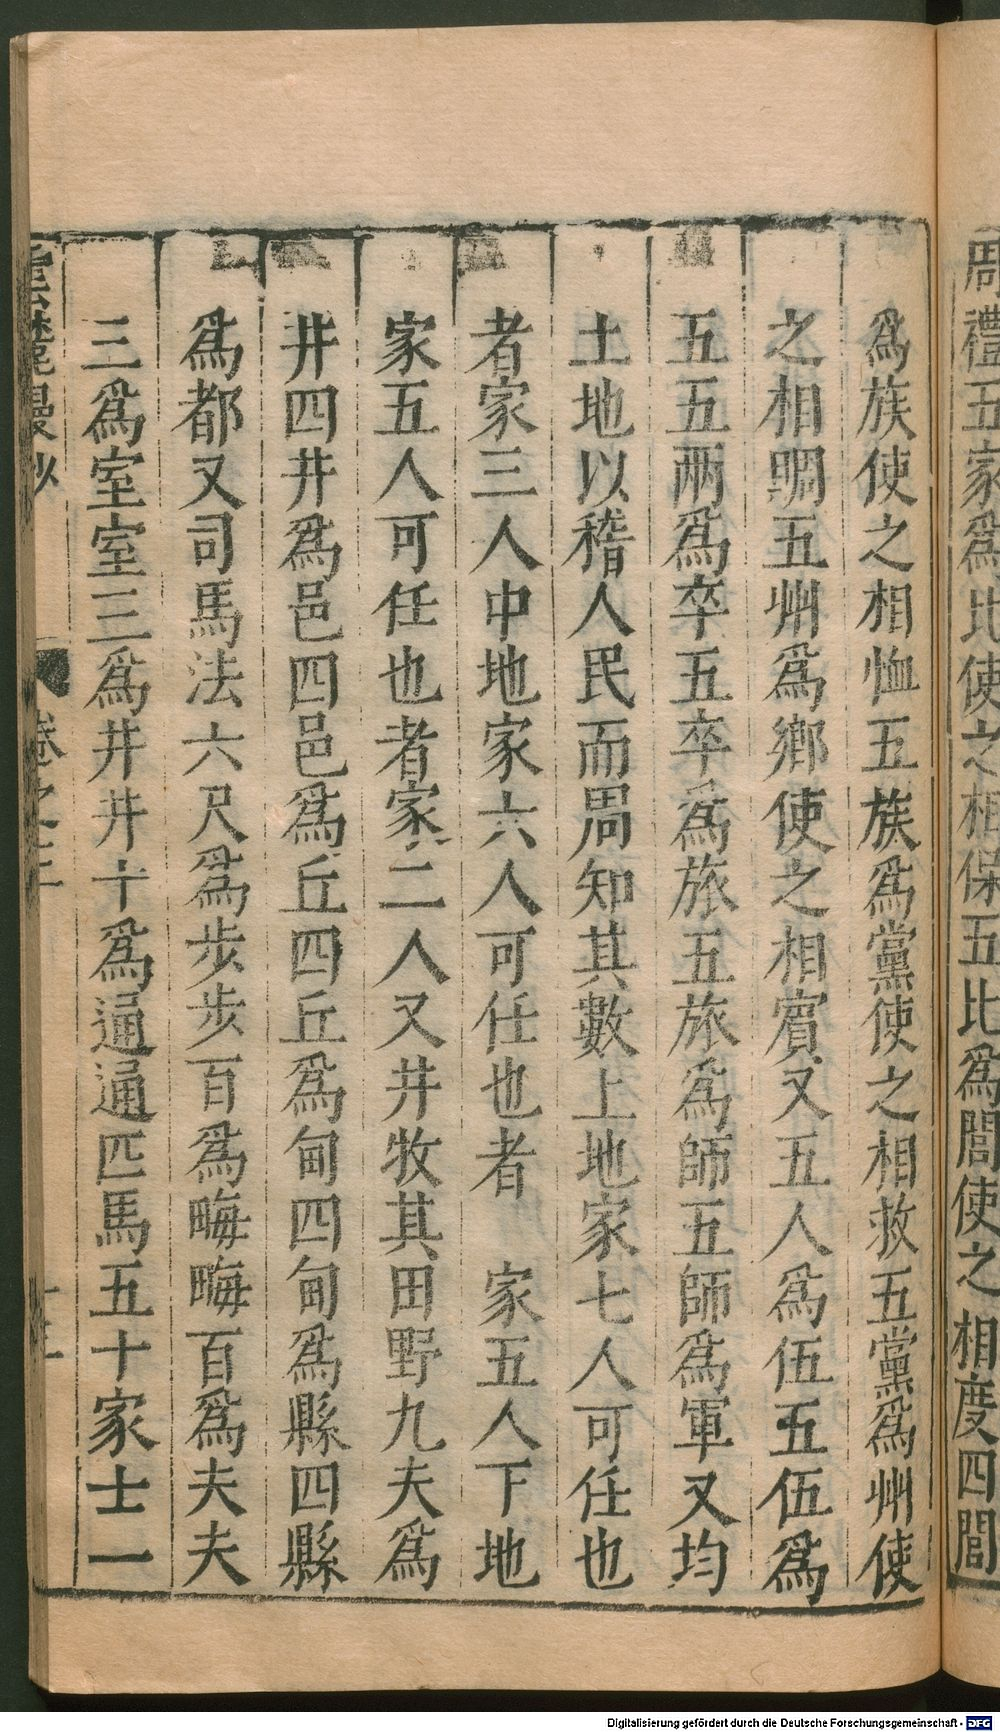 周禮五家爲比使之相保五比爲閭使之相度四閭
爲族使之相恤五族爲黨使之相救五黨爲州使
之相賙五州爲鄉使之相賓又五人爲伍五伍爲
五五兩爲卒五卒爲旅五旅爲師五師爲軍又均
土地以稽人民而周知其數上地家七人可任也
者家三人中地家六人可任也者 家五人下地
家五人可任也者家二人又井牧其田野九夫爲
井四井爲邑四邑爲丘四丘爲甸四甸爲縣四縣
爲都又司馬法六尺爲步步百爲畮畮百爲夫夫
三爲室室三爲井井十爲通通匹馬五十家士一
雲麓漫抄 卷之
Digitalisierung gefördert durch die Deutsche Forschungsgemeinschaft - DFG